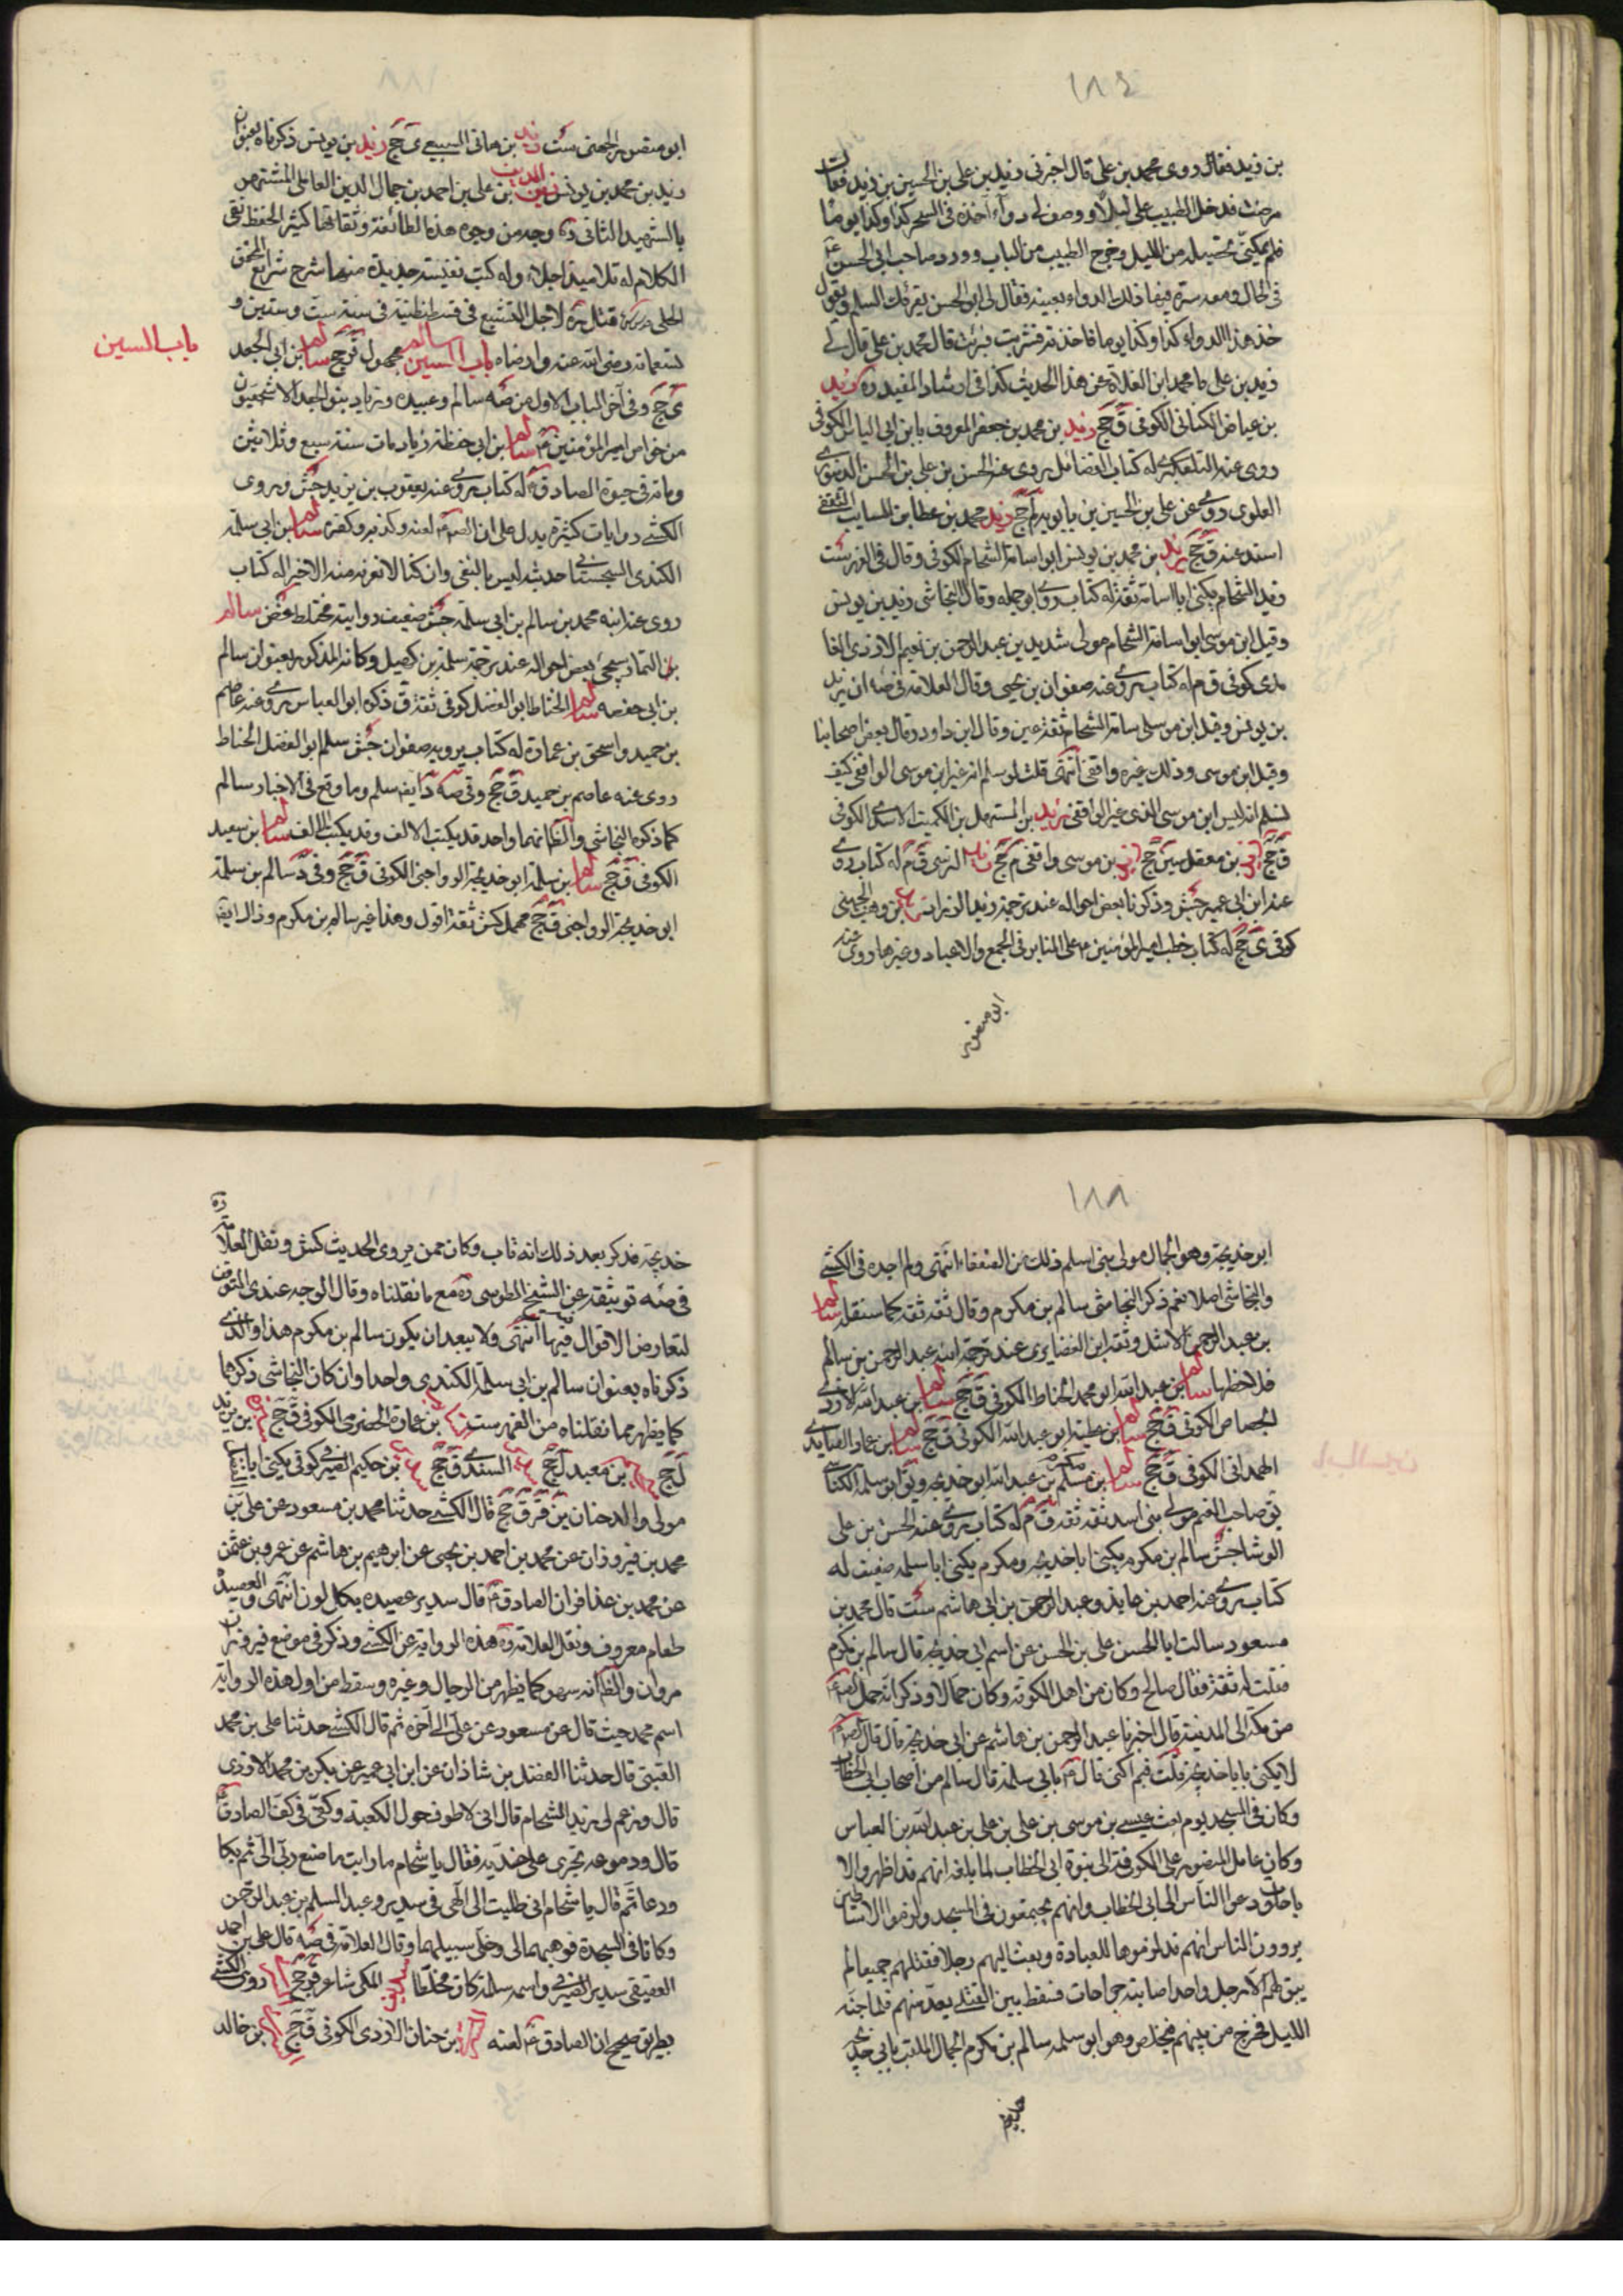 ١٨٤
بن زيد فقال روى محمد بن على قال اخبرنى زيد بن على بن الحسين بن زيد فقال
مرضت فدخل الطبيب على ليلا و وصف لى دواء آخذه فى السحر كذا وكذا يوما
فلم يمكننى تحصيله من الليل وخرج الطبيب من الباب وورد صاحب ابى الحسن ع
فى الحال ومعه صرة فيها ذلك الدواء بعينه فقال لى ابى الحسن يقرئك السلم ويقول
خذ هذا الدواء كذا وكذا يوما فاخذته فشربت فبرئت قال محمد بن على قال لى
زيد بن على يا محمد اين الغلاة عن هذا الحديث كذا فى ارشاد المفيد ره زيد
بن عياض الكنانى الكوفى ق جخ زيد بن محمد بن جعفر المعروف بابن ابى الياس الكوفى
روى عنه التلعكبرى له كتاب الفضائل يروى عن الحسن بن على بن الحسن الدينورى
العلوى روى عن على بن الحسين بن بابويه لم جخ زيد محمد بن عطا بن السايب الثقفى
اسند عنه ق جخ زيد بن محمد بن يونس ابو اسامة الشحام الكوفى وقال فى الفهرست
زيد الشحام يكنى ابا اسامة ثقة له كتاب روى ابو جميله وقال النجاشى زيد بن يونس
وقيل ابن موسى ابو اسامة الشحام مولى شديد بن عبد الرحمن بن نعيم الازدى الغا
مدى كوفى ق م له كتاب يروى عنه صفوان بن يحيى وقال العلامة فى صه ان زيد
بن يونس وقيل ابن موسى اسامة الشحام ثقة عين وقال ابن داود وقال بعض اصحابنا
وقيل ابن موسى وذلك غيره واقفى انتهى قلت لو سلم انه غير ابن موسى الواقفى كيف
نسلم انه ليس ابن موسى الذى غير الواقفى زيد بن المستهل بن الكميت الاسدى الكوفى
ق جخ زيد بن معقل سين جخ زيد بن موسى واقفى م جخ زيد النرسى ق م له كتاب روى
عنه ابن ابى عمير جش وذكرنا بعض احواله عند ترجمة زيد الزراد ست زيد بن وهب الجهنى
كوفى ى جخ له كتاب خطب امير المؤمنين ع على المنابر فى الجمع والاعياد وغيرها روى عنه
ابو منصور
ابو منصور الجهنى ست زيد بن هانى السبيعى ى جخ زيد بن يونس ذكرناه بعنوان
زيد بن محمد بن يونس زين الدين بن على بن احمد بن جمال الدين العاملى المشتهر
بالشهيد الثانى ره وجه من وجوه هذه الطائفة وثقاتها كثير الحفظ نقى
الكلام له تلاميذ اجلاء وله كتب نفيسة جديدة منها شرح شرايع المحقق
الحلى قدس سره قتل ره لاجل التشيع فى قسطنطنية فى سنة ست وستين و
تسعمائه رضى الله عنه وارضاه باب السين سالم مجهول ق جخ سالم بن ابى الجعد
باب السين
ى جخ وفى آخر الباب الاول من صه سالم وعبيده وزياد بنو الجعد الاشجعيون
من خواص امير المؤمنين ع سالم بن ابى حفظة زياد مات سنة سبع وثلاثين
ومائة فى حيوة الصادق ع له كتاب يروى عنه يعقوب بن يزيد جش و روى
الكشى روايات كثيرة يدل على ان الص ع لعنه وكذبه وكفره سالم بن ابى سلمة
الكندى السجستانى حديثه ليس بالنقى وان كنا لا نعرف منه الا خيرا له كتاب
روى عنه ابنه محمد بن سالم بن ابى سلمة جش ضعيف روايته مختلط غض سالم
بن التمار سيجئ بعض احواله عند ترجمة سلمة بن كهيل وكانه المذكور بعنوان سالم
بن ابى حفصه سالم الحناط ابو الفضل كوفى ثقة ق ذكره ابو العباس روى عنه عاصم
بن حميد و اسحق بن عمار له كتاب يرويه صفوان جش سلم ابو الفضل الحناط
روى عنه عاصم بن حميد ق جخ وفى صه د ايضا سلم وما وقع فى الاخبار سالم
كما ذكره النجاشى والظ انهما واحد قد يكتب الالف وقد يكتب بلا الف سالم بن سعيد
الكوفى ق جخ سالم بن سلمة ابو خديجة الرواجنى الكوفى ق جخ وفى د سالم بن سلمة
ابو خديجة الرواجنى ق جخ مهمل كش ثقة اقول وهذا غير سالم بن مكرم وذاك ايضا
١٨٨
ابو خديجة وهو الجمال مولى بنى اسلم ذلك من الضعفاء انتهى ولم اجده فى الكشى
والنجاشى اصلا نعم ذكر النجاشى سالم بن مكرم وقال ثقه ثقه كما سننقله سالم
بن عبد الرحمن الاشل وثقه ابن الغضايرى عند ترجمة ابنه عبد الرحمن بن سالم
فلاحظها سالم بن عبد الله ابو محمد الحناط الكوفى ق جخ سالم بن عبد الله الازدى
الجصاص الكوفى ق جخ سالم بن عطية ابو عبد الله الكوفى ق جخ سالم بن عمار الصايدى
الهمدانى الكوفى ق جخ سالم بن مكرم بن عبد الله ابو خديجه ويق ابو سلمه الكناسى
يق صاحب الغنم مولى بنى اسد ثقه ثقه ق م له كتاب يروى عنه الحسن بن على
الوشا جش سالم بن مكرم يكنى ابا خديجه ومكرم يكنى ابا سلمه ضعيف له
كتاب يروى عنه احمد بن عايذ و عبد الرحمن بن ابى هاشم ست قال محمد بن
مسعود سالت ابا الحسن على بن الحسن عن اسم ابى خديجه قال سالم بن مكرم
فقلت له ثقة فقال صالح وكان من اهل الكوفة وكان جمالا وذكر انه حمل الص ع
من مكة الى المدينة قال اخبرنا عبد الرحمن بن هاشم عن ابى خديجة قال قال الص ع
لا يكنى بابا خديجة قلت فبم اكتنى قال ع بابى سلمة قال سالم من اصحاب ابى الخطاب
وكان فى المسجد يوم بعث عيسى بن موسى بن على بن على بن عبد الله بن العباس
وكان عامل المنصور على الكوفة الى نبوة ابى الخطاب لما بلغه انهم قد اظهروا الا
باحات ودعوا الناس الى ابى الخطاب وانهم يجتمعون فى المسجد ولزموا الاساطين
يروون الناس انهم قد لزموها للعبادة وبعث اليهم رجلا فقتلهم جميعا لم
يبق منهم الا رجل واحد اصابته جراحات فسقط بين القتلى يعد منهم فلما جنه
الليل فخرج من بينهم فتخلص وهو ابو سلمه سالم بن مكرم الجمال الملقب بابى خديجه
خديجه
خديجة فذكر بعد ذلك انه تاب وكان ممن يروى الحديث كش ونقل العلامة ره
فى صه توثيقه عن الشيخ الطوسى ره مع ما نقلناه وقال الوجه عندى التوقف
لتعارض الاقوال فيه انتهى ولا يبعد ان يكون سالم بن مكرم هذا والذى
ذكرناه بعنوان سالم بن ابى سلمة الكندى واحدا وان كان النجاشى ذكرهما
كما يظهر مما نقلناه من الفهرست بن عمارة الحضرمى الكوفى ق جخ بن يزيد
ل جخ بن معبد ل جخ السندى ق جخ بن حكيم الصيرفى كوفى يكنى ابا
مولى والد حنان ين قر ق جخ قال الكشى حدثنا محمد بن مسعود عن على بن
محمد بن فيروزان عن محمد بن احمد بن يحيى عن ابرهيم بن هاشم عن عمرو بن عثمن
عن محمد بن عذافر ان الصادق ع قال سدير عصيده بكل لون انتهى والعصيدة
طعام معروف ونقل العلامة ره هذه الرواية عن الكشى وذكر فى موضع فيروزان
مروان والظ انه سهو كما يظهر من الرجال وغيره وسقط من اول هذه الرواية
اسم محمد حيث قال عن مسعود عن على الى آخره ثم قال الكشى حدثنا على بن محمد
القتيبى قال حدثنا الفضل بن شاذان عن ابن ابى عمير عن بكر بن محمد الازدى
قال وزعم لى زيد الشحام قال انى لاطوف حول الكعبة وكفى فى كف الصادق ع
قال ودموعه تجرى على خديه فقال يا شحام ما رايت ما صنع ربى الى ثم بكا
ودعا ثم قال يا شحام انى طلبت الى الهى فى سدير وعبد السلم بن عبد الرحمن
وكانا فى السجن فوهبهما لى وخلى سبيلهما وقال العلامة فى صه قال على بن احمد
العقيقى سدير الصيرفى واسمه سلمة كان مخلطا المكى شاعر ق جخ روى الكشى
بطريق صحيح ان الصادق ع لعنه بن حنان الازدى الكوفى ق جخ بن خالد